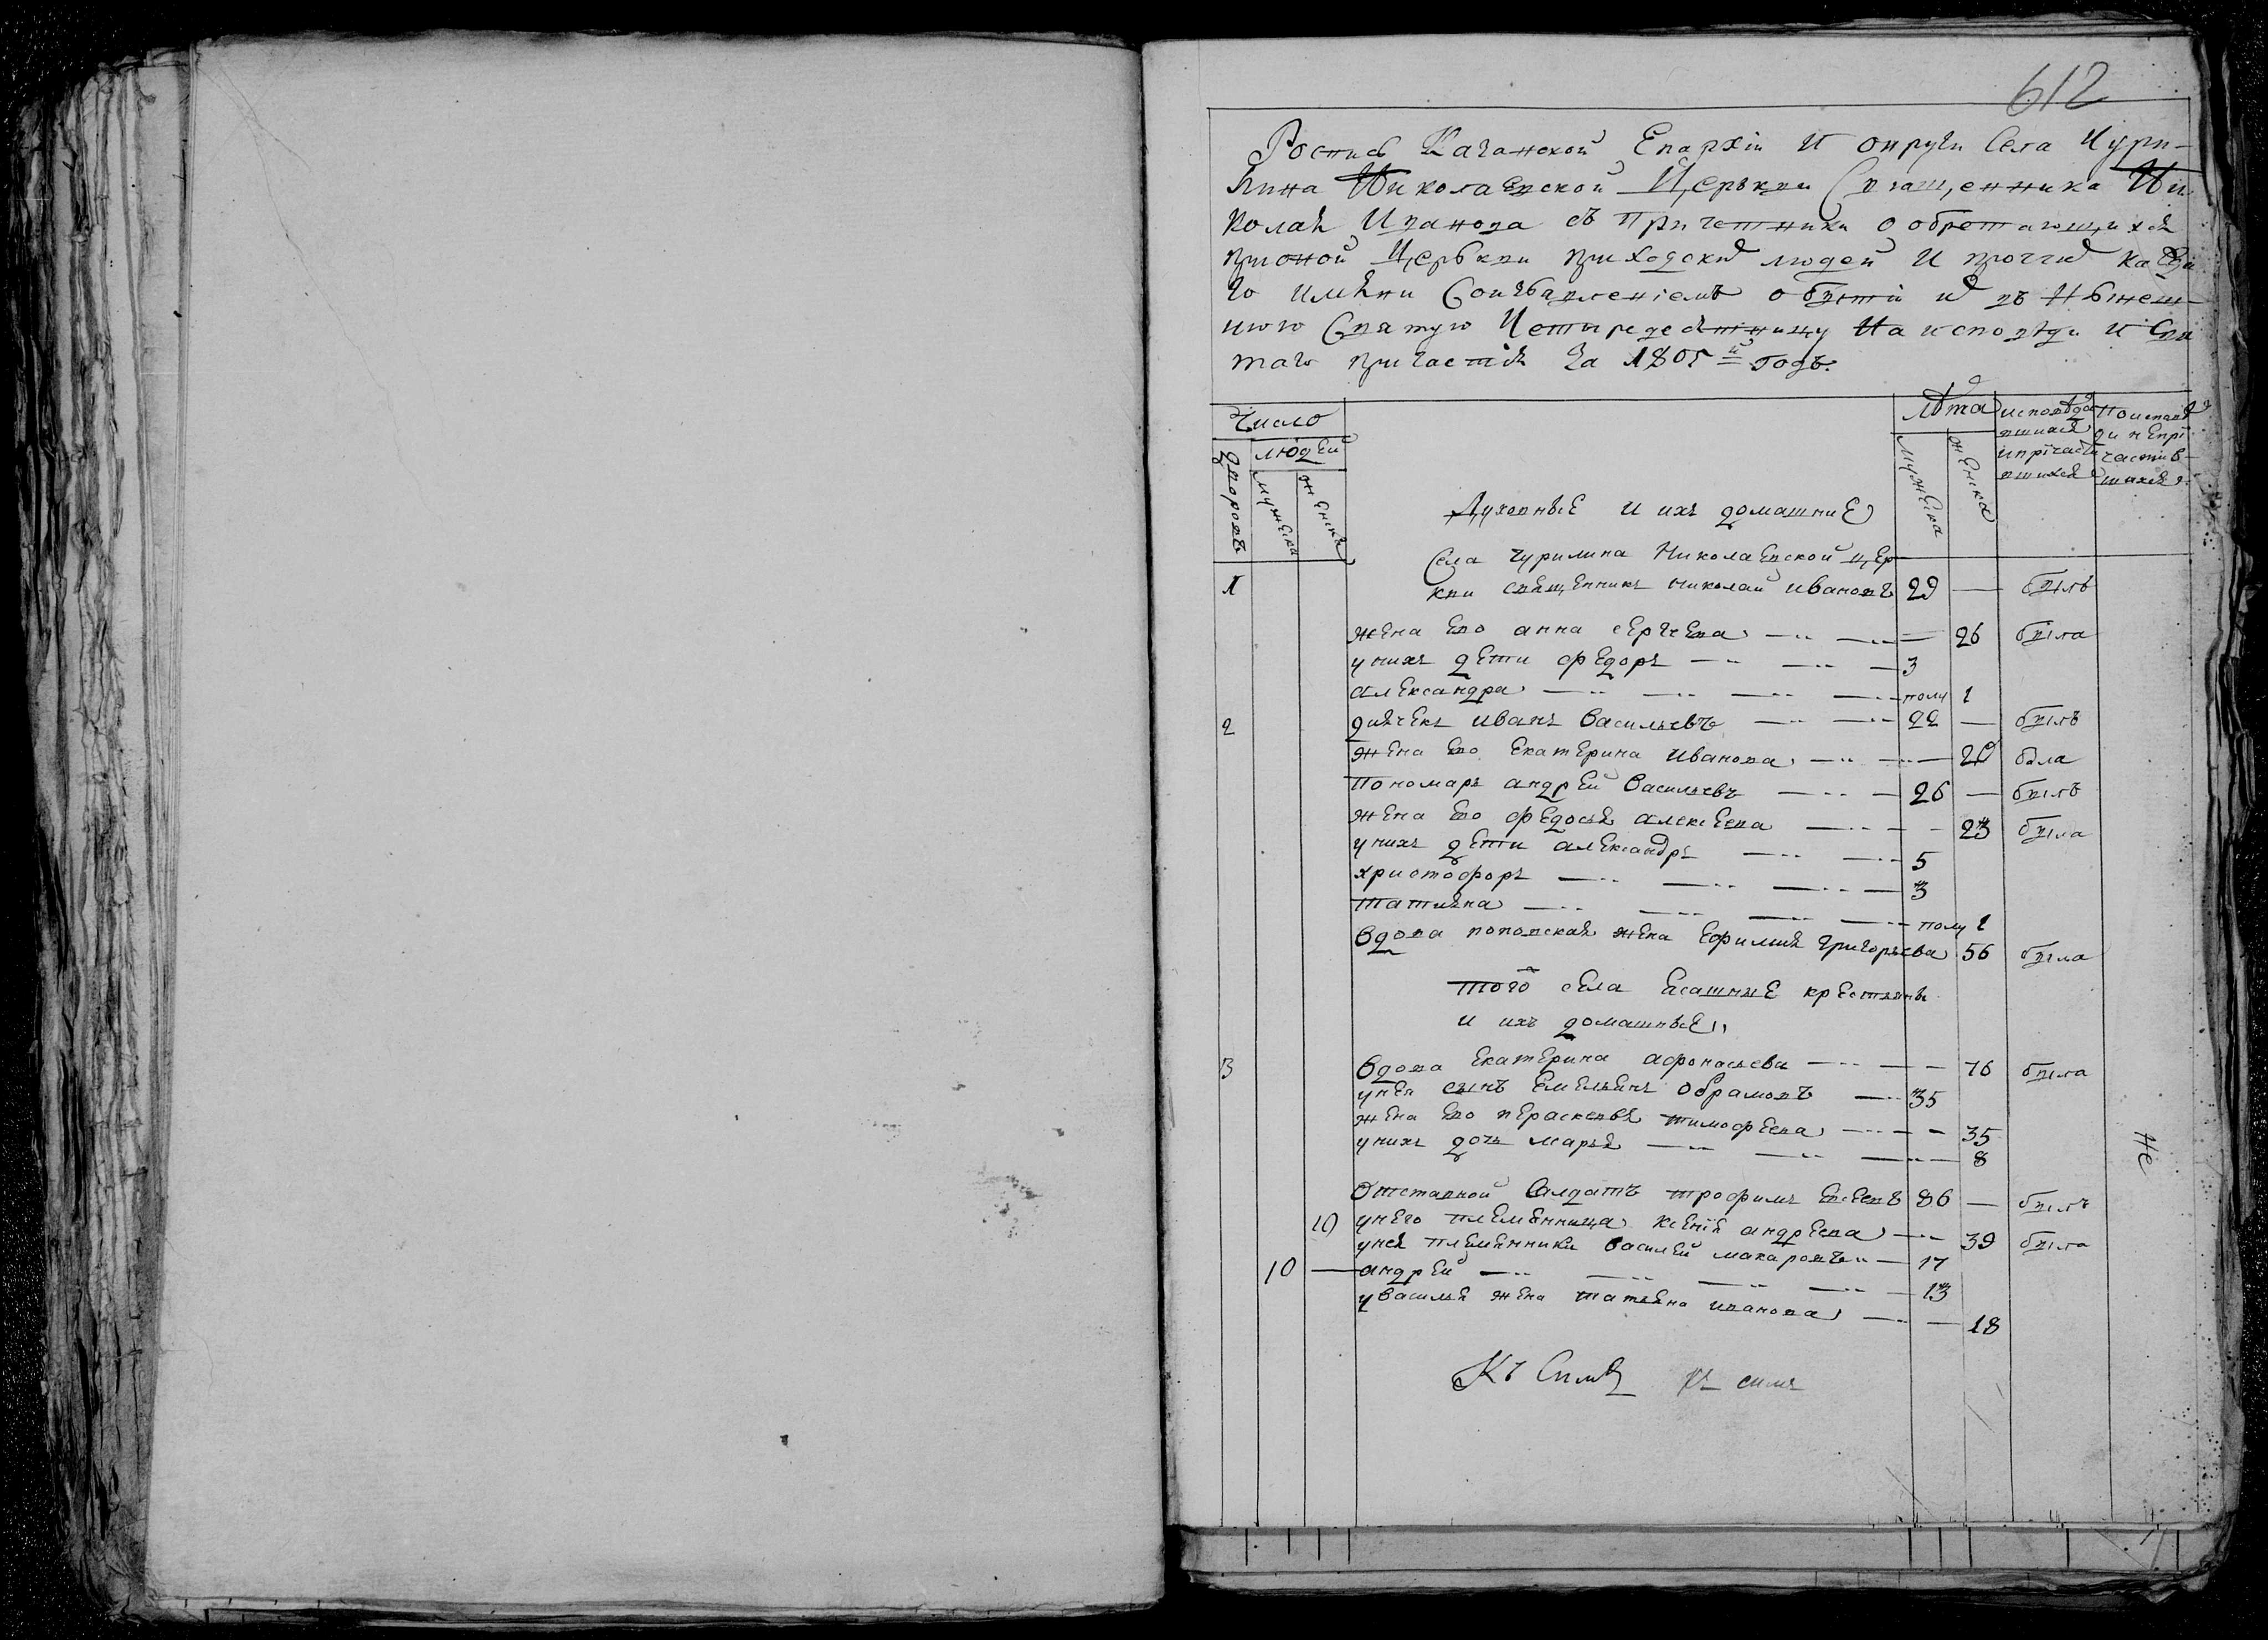 612
Роспись Казанской Епархіи и округи Села Чури-
лина Николаевской Церькви Священника Ни-
колая Иванова съ причетники о обретающихся
прионой Церькви приходскихъ людей и прочихъ каждо-
го имяни Соизъявленіемъ о бытіи ихъ въ Нынеш-
нюю Святую Четыредесятницу На исповѣди и Свя
таго причастія За 1805й годъ.
Число
людей
дворовъ
мужеска
женска
лѣта
мужеска
женска
исповѣдав
шихся
ипричасти
вшихся
По исповѣ
ди непри
частив
шихся
Духовные и ихъ домашние
Села Чурилина Николаевской цер
1 кви священникъ николай ивановъ 29 — былъ
жена ево анна сергеева — — 26 была
унихъ дети федоръ — — 3
александра — — — — полу 1
2 дьячекъ иванъ васильевъ — — 22 — былъ
жена ево екатерина иванова — — 20 была
пономарь андрей васильевъ — — 26 — былъ
жена ево федосья алексеева — — 23 была
унихъ дети александръ — — 5
христофоръ — — — — 3
татьяна — — — — полу 1
вдова поповская жена ефимия григорьева 56 была
того села ясашные крестьяне
и ихъ домашные
3 вдова екатерина афонасьева — — 76 была
унея сынъ емельянъ обрамовъ — 35
жена ево параскевья тимофеева — — 35
унихъ дочь марья — — — 8
Не
отставной салдатъ трофимъ евсеевъ 86 — былъ
10 унего племянница ксения андреева — 39 была
унея племянники василей макаровъ — 17
10 — андрей — — — — 13
увасилья жена татьяна иванова — — 18
Къ Сим